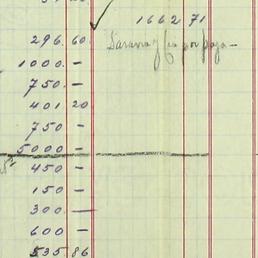 1662 71
296.60
1000.—
750.—
401 20
750 —
5000 —
450 —
150 —
300 —
600 —
535 86